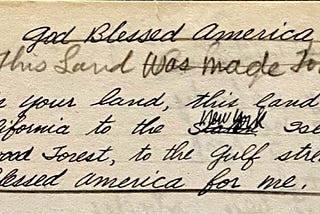 God Blessed America
This Land Was made For
your land, this land
ifornia to the Staten New York Isl
wood Forest, to the Gulf stre
lessed America for me.